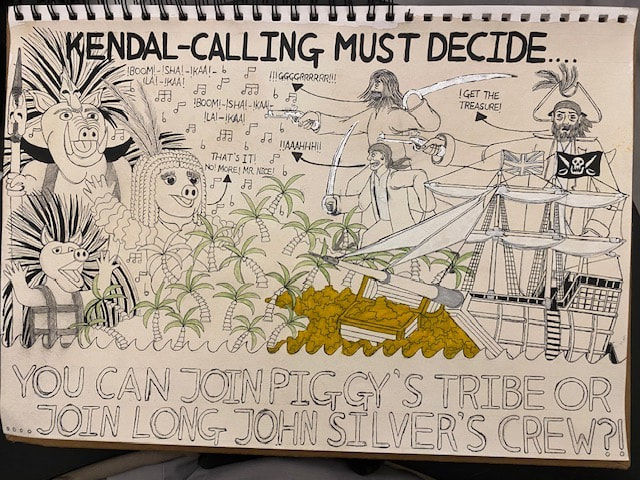 KENDAL-CALLING MUST DECIDE....
!BOOM!-!SHA!-!KAA!-
!LA!-!KAA!
!BOOM!-!SHA!-!KAA!-
!LA!-!KAA!
THAT'S IT!
NO! MORE! MR. NICE!
!!!GGGGRRRRRR!!!
!!AAAHHH!!
!GET THE
TREASURE!
YOU CAN JOIN PIGGY'S TRIBE OR
....JOIN LONG JOHN SILVER'S CREW?!